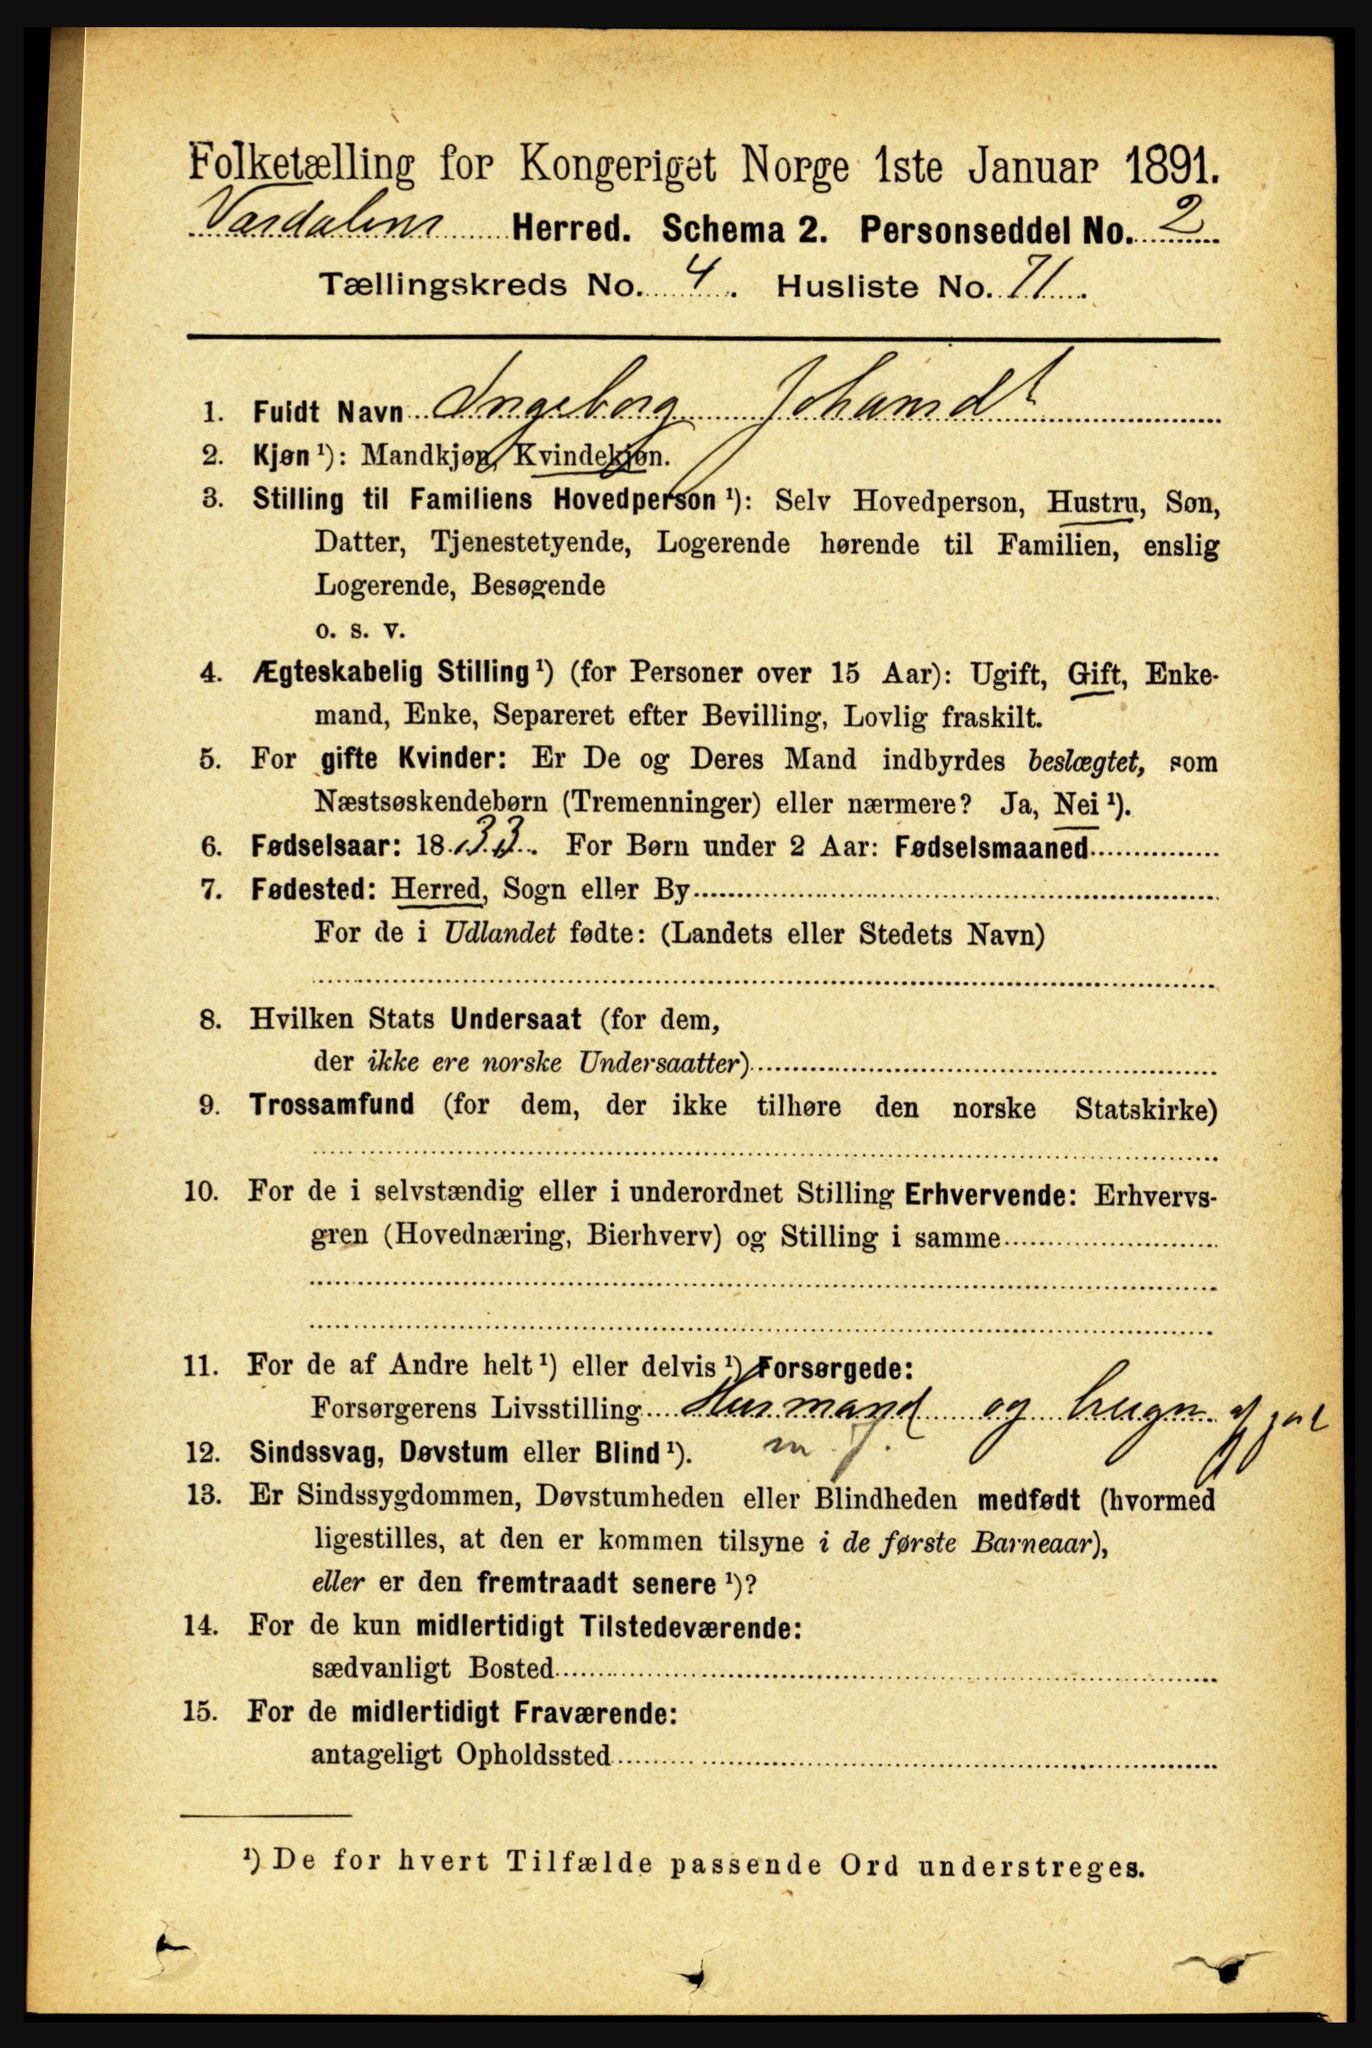 Folketælling for Kongeriget Norge 1ste Januar 1891.
Vardalens Herred. Schema 2. Personseddel No. 2
Tællingskreds No. 4. Husliste No. 71.
1. Fuldt Navn Ingeborg Johansdt
2. Kjøn ¹): Mandkjøn, Kvindekjøn.
3. Stilling til Familiens Hovedperson ¹): Selv Hovedperson, Hustru, Søn,
Datter, Tjenestetyende, Logerende hørende til Familien, enslig
Logerende, Besøgende
o. s. v.
4. Ægteskabelig Stilling ¹) (for Personer over 15 Aar): Ugift, Gift, Enke-
mand, Enke, Separeret efter Bevilling, Lovlig fraskilt.
5. For gifte Kvinder: Er De og Deres Mand indbyrdes beslægtet, som
Næstsøskendebørn (Tremenninger) eller nærmere? Ja, Nei ¹).
6. Fødselsaar: 1833. For Børn under 2 Aar: Fødselsmaaned
7. Fødested: Herred, Sogn eller By
For de i Udlandet fødte: (Landets eller Stedets Navn)
8. Hvilken Stats Undersaat (for dem,
der ikke ere norske Undersaatter)
9. Trossamfund (for dem, der ikke tilhøre den norske Statskirke)
10. For de i selvstændig eller i underordnet Stilling Erhvervende: Erhvervs-
gren (Hovednæring, Bierhverv) og Stilling i samme
11. For de af Andre helt ¹) eller delvis ¹) Forsørgede:
Forsørgerens Livsstilling Husmand og brugn af jord
12. Sindssvag, Døvstum eller Blind ¹). m J.
13. Er Sindssygdommen, Døvstumheden eller Blindheden medfødt (hvormed
ligestilles, at den er kommen tilsyne i de første Barneaar),
eller er den fremtraadt senere ¹)?
14. For de kun midlertidigt Tilstedeværende:
sædvanligt Bosted
15. For de midlertidigt Fraværende:
antageligt Opholdssted
¹) De for hvert Tilfælde passende Ord understreges.